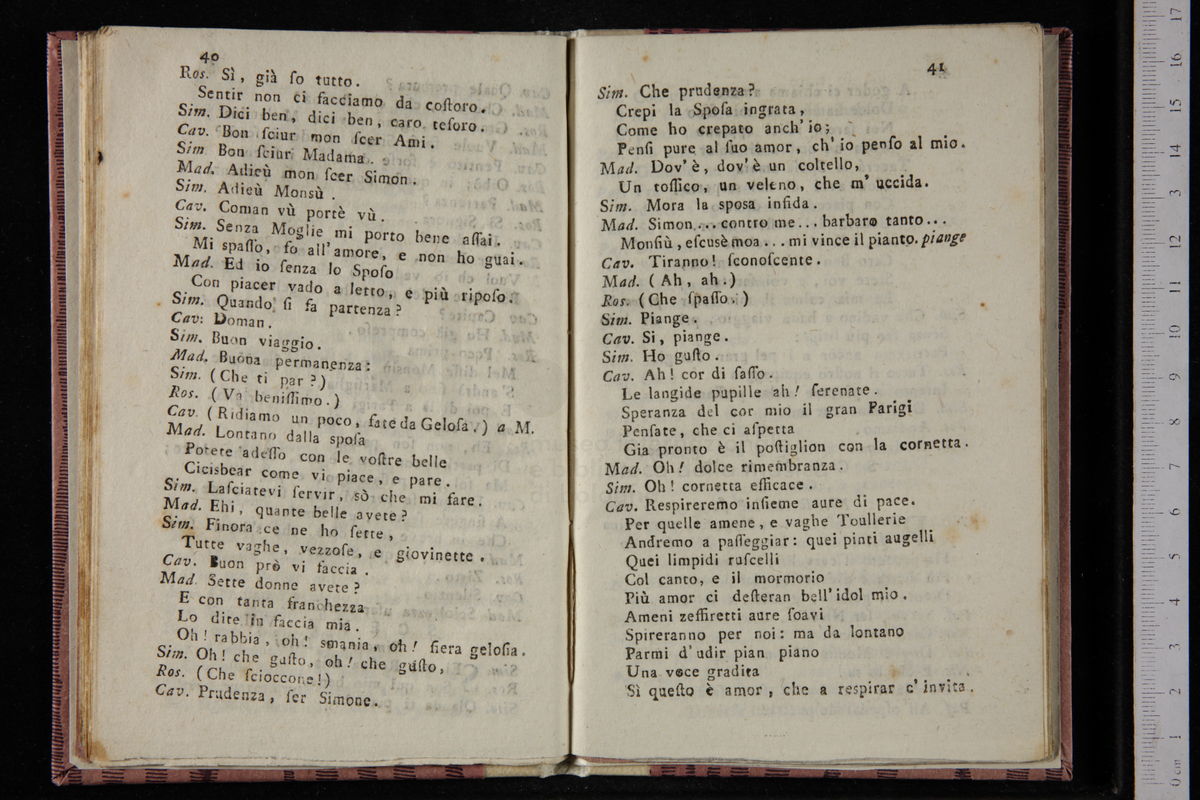 40
Ros. Sì, già ſo tutto.
Sentir non ci facciamo da coſtoro.
Sim. Dici ben, dici ben, caro teſoro.
Cav. Bon ſciur mon ſcer Ami.
Sim Bon ſciur Madama.
Mad. Adieù mon ſcer Simon.
Sim. Adieù Monsù.
Cav. Coman vù portè vù.
Sim. Senza Moglie mi porto bene aſſai.
Mi spaſſo, fo all'amore, e non ho guai.
Mad. Ed io ſenza lo Spoſo
Con piacer vado a letto, e più ripoſo.
Sim. Quando ſi fa partenza?
Cav: Doman.
Sim. Buon viaggio.
Mad. Buona permanenza:
Sim. (Che ti par?)
Ros. (Va beniſſimo.)
Cav. (Ridiamo un poco, fate da Geloſa.) a M.
Mad. Lontano dalla spoſa
Potete adeſſo con le voſtre belle
Cicisbear come vi piace, e pare.
Sim. Laſciatevi ſervir, sò che mi fare.
Mad. Ehi, quante belle avete?
Sim. Finora ce ne ho ſette,
Tutte vaghe, vezzoſe, e giovinette.
Cav. Buon prò vi faccia.
Mad. Sette donne avete?
E con tanta franchezza
Lo dite in faccia mia.
Oh! rabbia, oh! smania, oh! fiera geloſia.
Sim. Oh! che guſto, oh! che guſto,
Ros. (Che ſcioccone!)
Cav. Prudenza, ſer Simone.
41
Sim. Che prudenza?
Crepi la Spoſa ingrata,
Come ho crepato anch'io;
Penſi pure al ſuo amor, ch'io penſo al mio.
Mad. Dov'è, dov'è un coltello,
Un toſſico, un veleno, che m'uccida.
Sim. Mora la sposa infida.
Mad. Simon... contro me... barbaro tanto...
Monſiù, eſcusèmoa... mi vince il pianto. piange
Cav. Tiranno! ſconoſcente.
Mad. (Ah, ah.)
Ros. (Che ſpaſſo.)
Sim. Piange.
Cav. Si, piange.
Sim. Ho guſto.
Cav. Ah! cor di ſaſſo.
Le langide pupille ah! ſerenate.
Speranza del cor mio il gran Parigi
Penſate, che ci aſpetta
Gia pronto è il poſtiglion con la cornetta.
Mad. Oh! dolce rimembranza.
Sim. Oh! cornetta efficace.
Cav. Respireremo inſieme aure di pace.
Per quelle amene, e vaghe Toullerie
Andremo a paſſeggiar: quei pinti augelli
Quei limpidi ruſcelli
Col canto, e il mormorio
Più amor ci deſteran bell'idol mio.
Ameni zeffiretti aure ſoavi
Spireranno per noi: ma da lontano
Parmi d'udir pian piano
Una voce gradita
Sì queſto è amor, che a respirar c'invita.